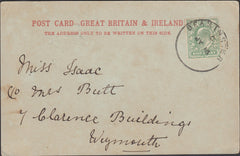 POST CARD - GREAT BRITAIN & IRELAND
THE ADDRESS ONLY TO BE WRITTEN ON THIS SIDE.
Miss Isaac
c/o Mrs Butt
7 Clarence Buildings
Weymouth